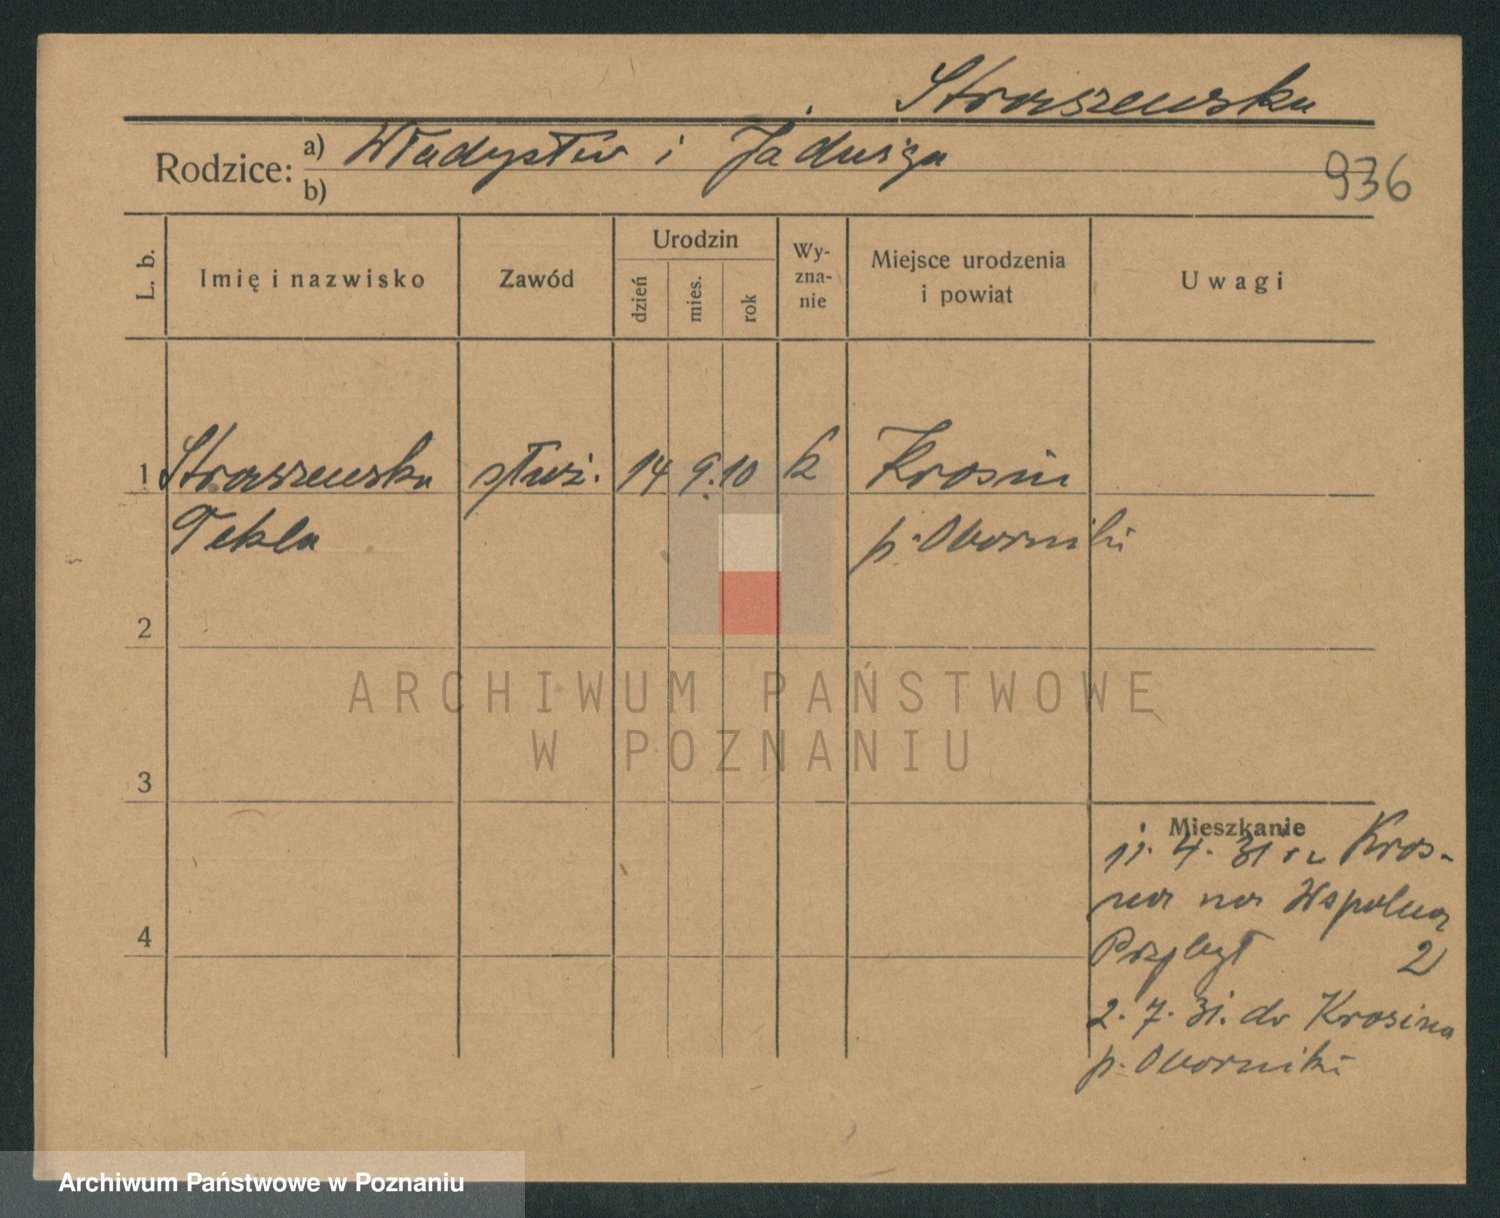 Straszewska
Rodzice: a) Władysław i Jadwiga
b)
936
L. b.
Imię i nazwisko
Zawód
Urodzin
dzień
mies.
rok
Wy-
zna-
nie
Miejsce urodzenia
i powiat
Uwagi
1 Straszewska służ. 14 9. 10 k Krosin
Tekla p. Oborniki
2
3
4
Mieszkanie
11. 4. 31 z Kros-
na na Wspolna
Przybył 2
2. 7. 31. do Krosina
p. Oborniki
ARCHIWUM PAŃSTWOWE
W POZNANIU
Archiwum Państwowe w Poznaniu